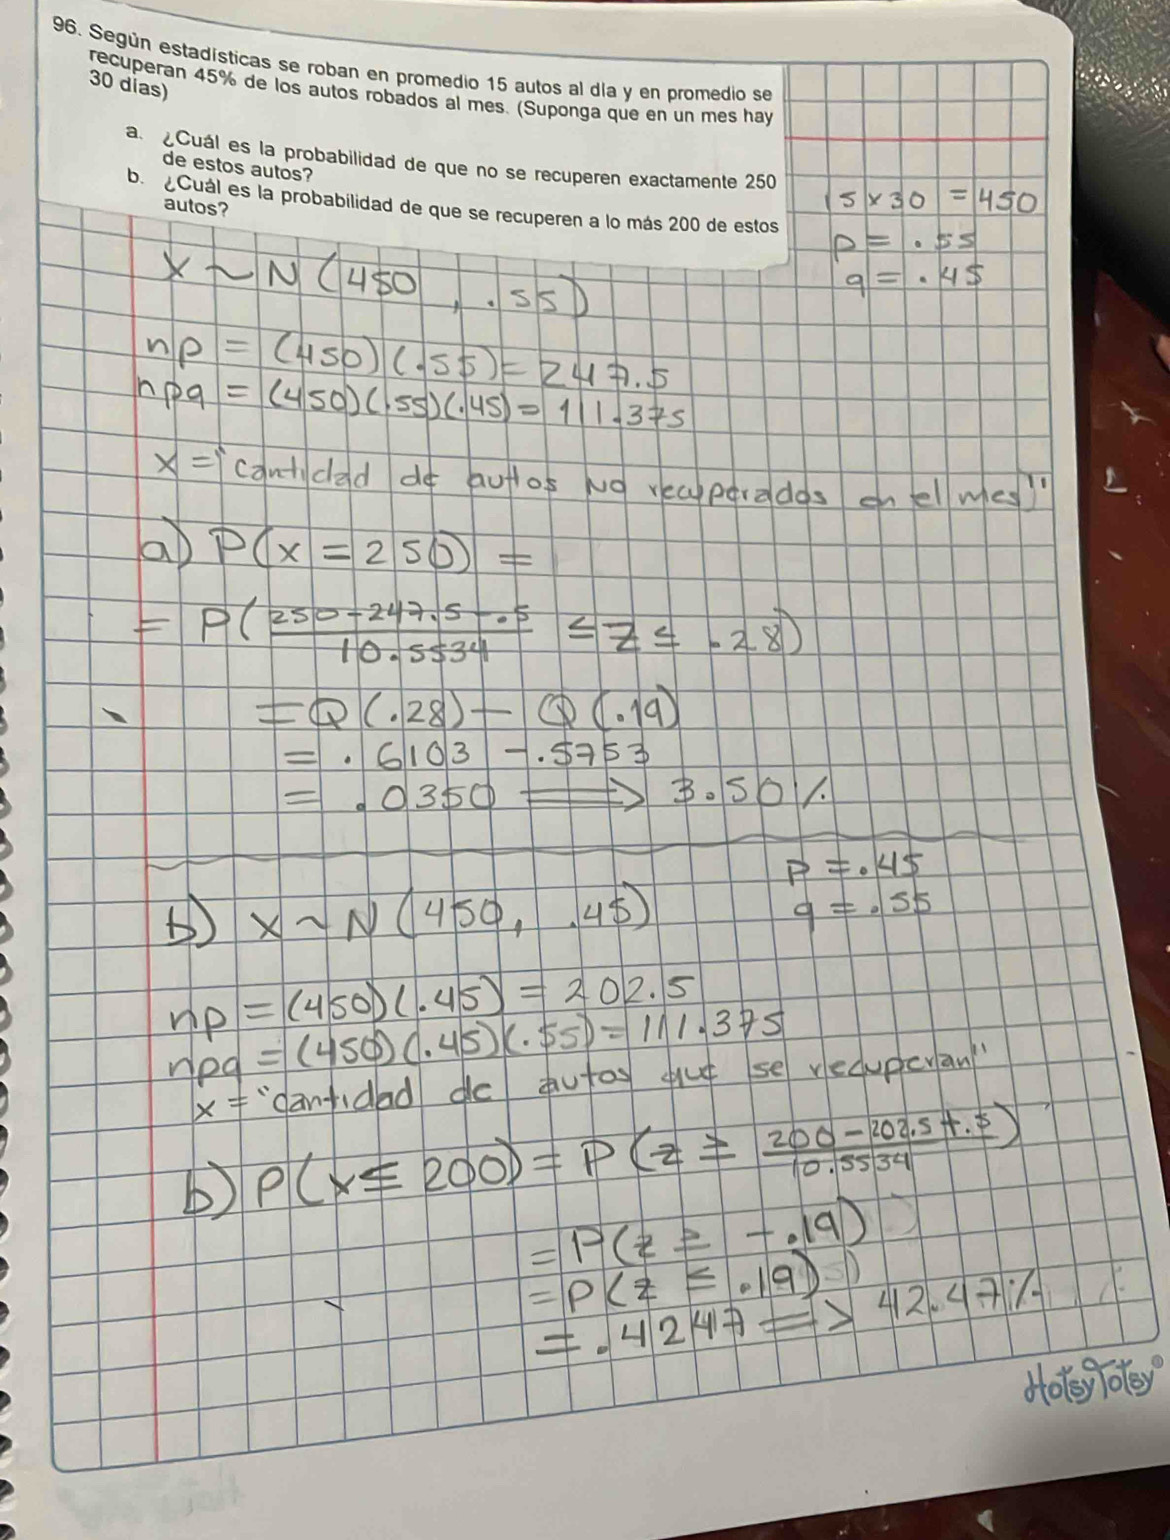 96. Según estadísticas se roban en promedio 15 autos al día y en promedio se
recuperan 45% de los autos robados al mes. (Suponga que en un mes hay
30 días)
a. ¿Cuál es la probabilidad de que no se recuperen exactamente 250
de estos autos?
b. ¿Cuál es la probabilidad de que se recuperen a lo más 200 de estos
autos?
15 x 30 = 450
p = .55
q = .45
x ~ N (450, .55)
np = (450)(.55) = 247.5
npq = (450)(.55)(.45) = 111.375
x = "cantidad de autos No recuperados en el mes"
a) P(x = 250) =
= P( 250 - 247.5 - .5 / 10.5534 ≤ z ≤ .28)
= Q(.28) - Q(.19)
= .6103 - .5753
= .0350 ⟹ 3.50%
p = .45
q = .55
b) x ~ N (450, .45)
np = (450)(.45) = 202.5
npq = (450)(.45)(.55) = 111.375
x = "cantidad de autos que se recuperan"
b) P(x ≤ 200) = P(z ≥ 200 - 202.5 + .5 / 10.5534)
= P(z ≥ -.19)
= P(z ≤ .19)
= .4247 => 42.47%
HotsyTotsy®